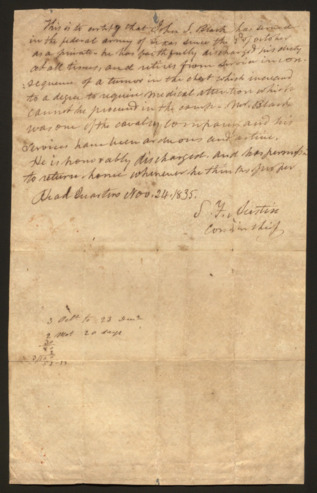 This is to certify that John S. Black has served
in the federal army of Texas since the 3d October
as a private he has faithfully discharged his duty
at all times, and retires from service in con-
sequence of a tumor in the chest which increased
to a degree to require medical attention which
cannot be procured in the camp. Mr. Black
was one of the cavalry company and his
services have been arduous and active.
He is honorably discharged and has permission
to return home whenever he thinks proper
Head Quarters Nov. 24. 1835.
S. F. Austin
Com in chief
3 Octr to 23
20 days